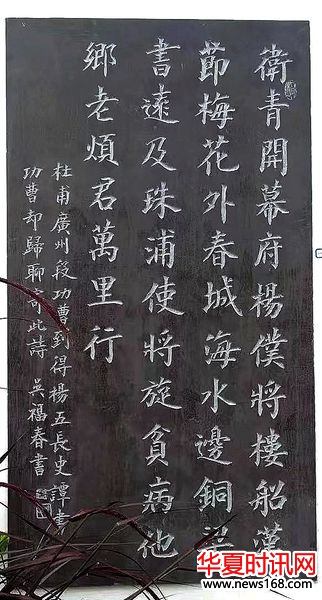 衛青開幕府楊僕將樓船漢
節梅花外春城海水邊銅梁
書遠及珠浦使將旋貧病他
鄉老煩君萬里行
杜甫廣州段功曹到得楊五長史譚書
功曹却歸聊寄此詩 吳福春書
华夏时讯网
www.news168.com